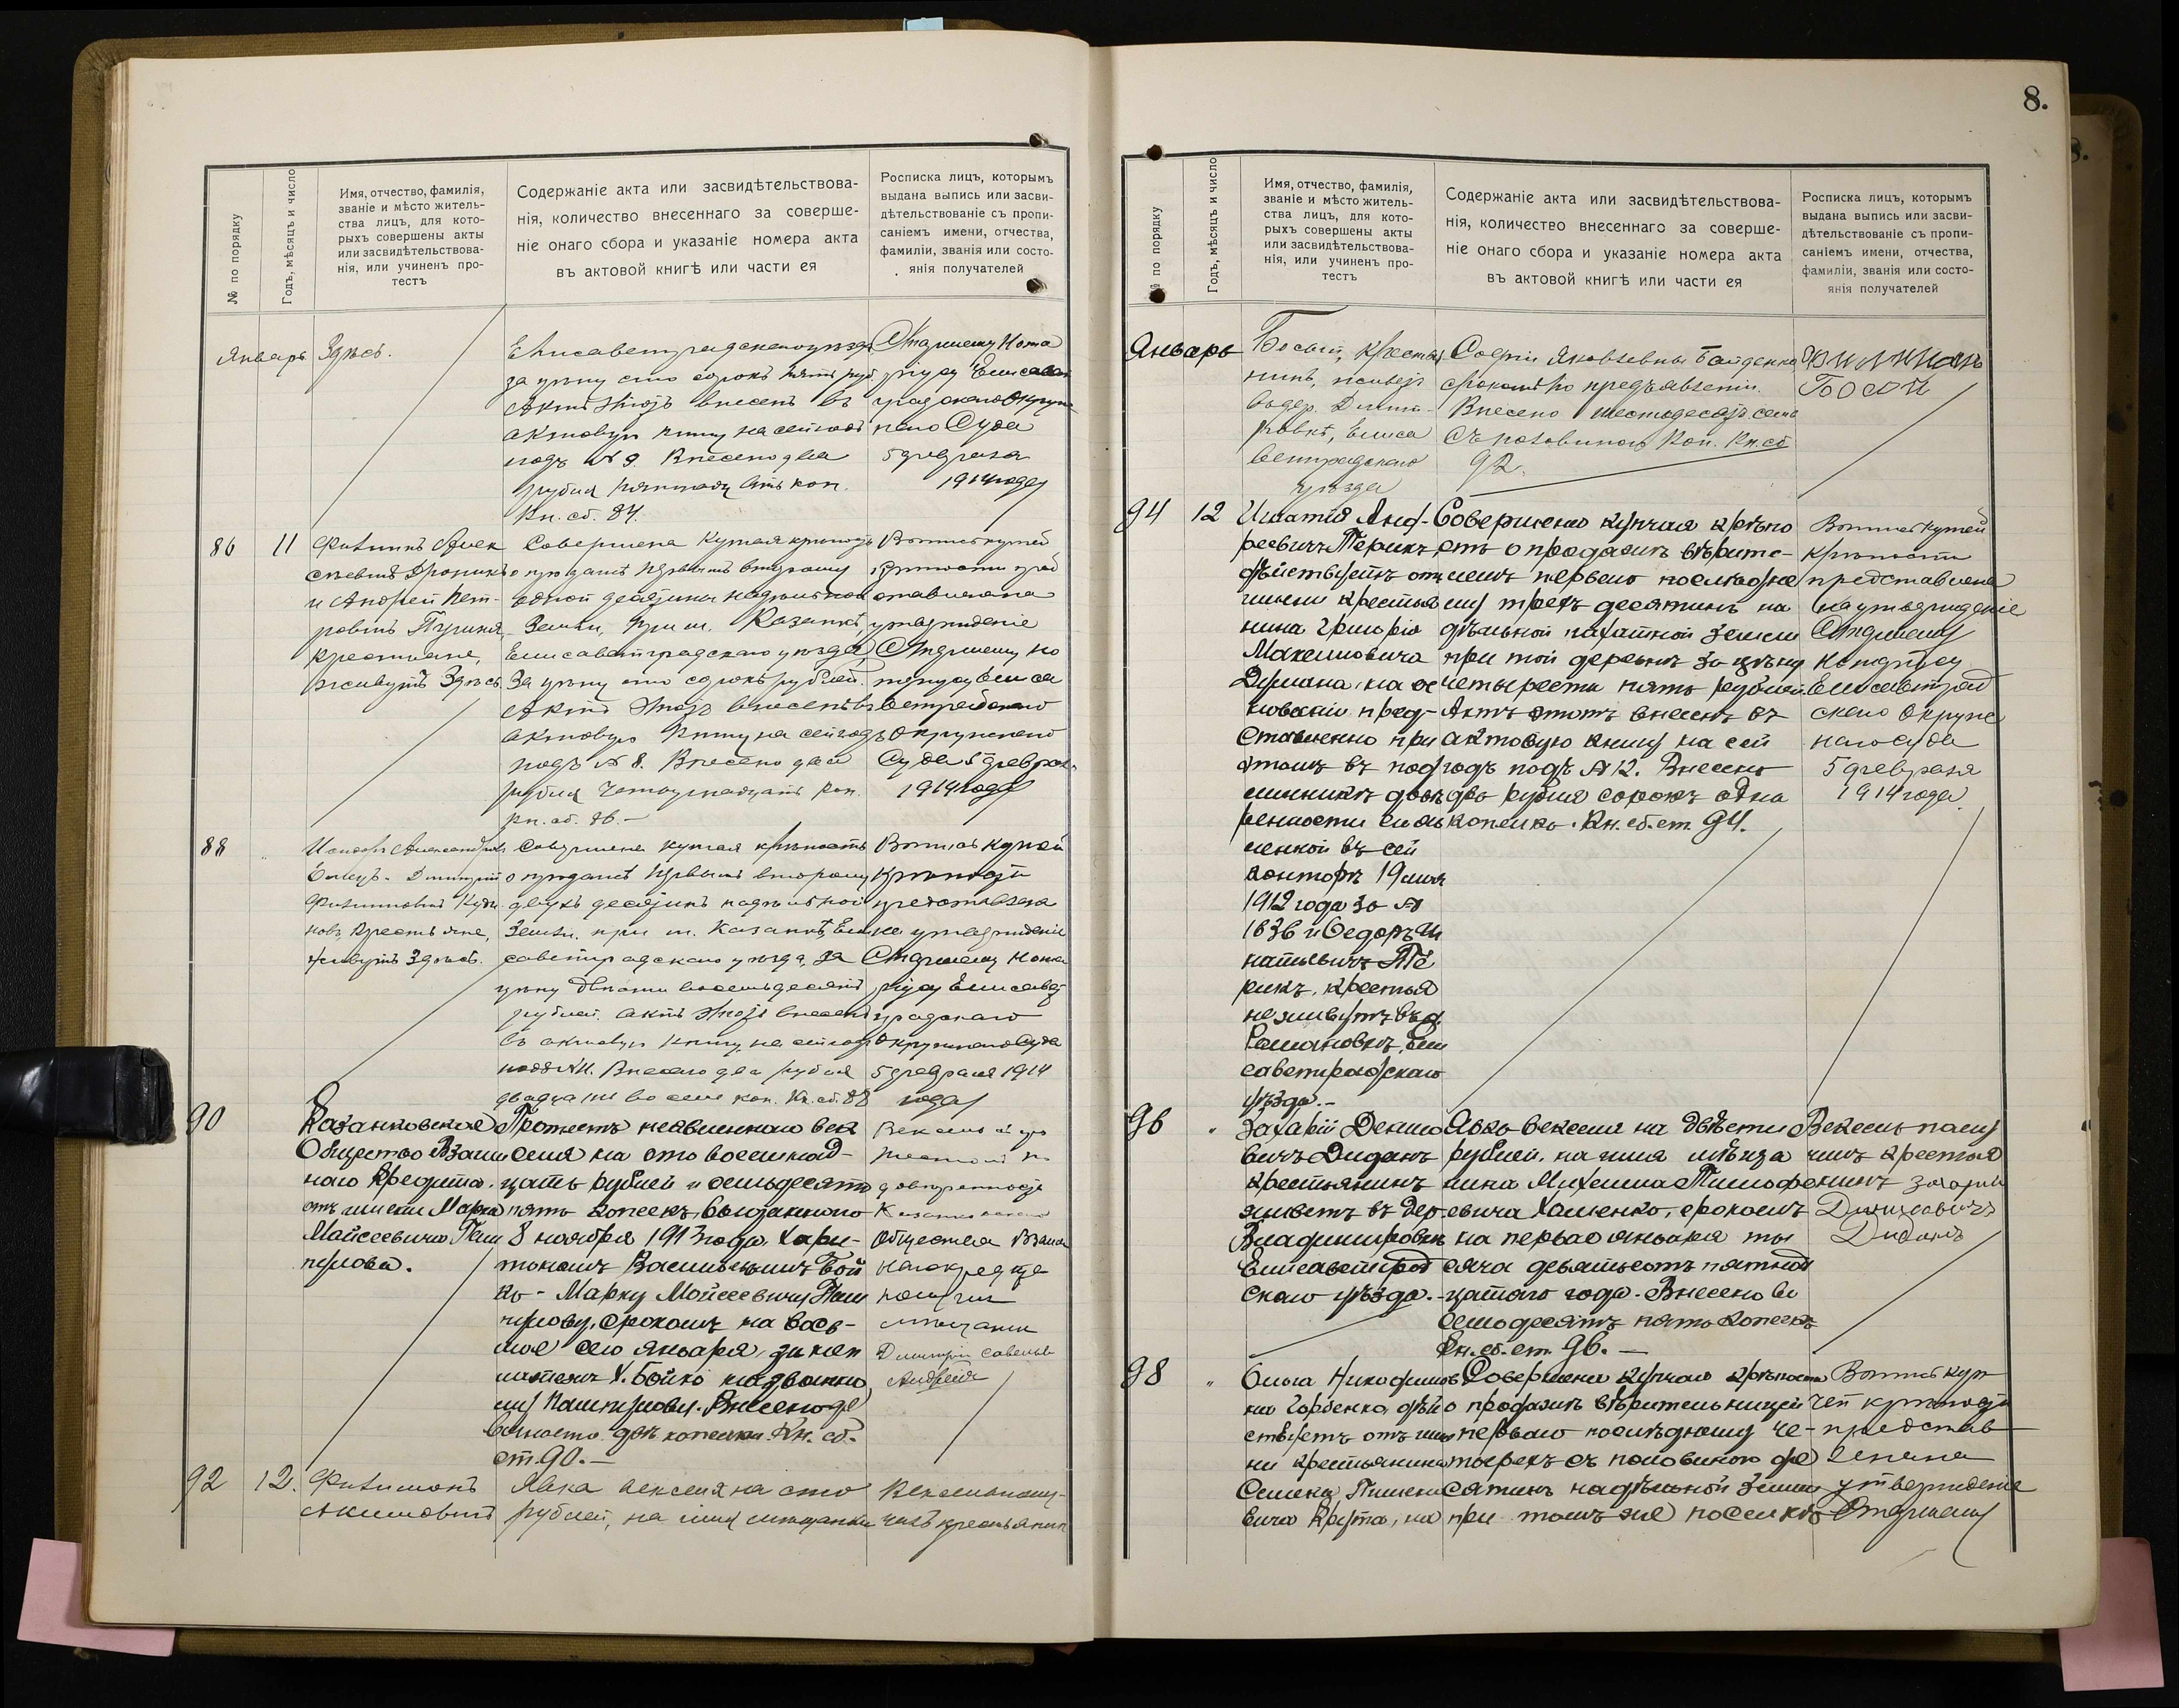 8.
№ по порядку
Годъ, мѣсяцъ и число
Имя, отчество, фамилія,
званіе и мѣсто житель-
ства лицъ, для кото-
рыхъ совершены акты
или засвидѣтельствова-
нія, или учиненъ про-
тестъ
Содержаніе акта или засвидѣтельствова-
нія, количество внесеннаго за соверше-
ніе онаго сбора и указаніе номера акта
въ актовой книгѣ или части ея
Росписка лицъ, которымъ
выдана выпись или засви-
дѣтельствованіе съ пропи-
саніемъ имени, отчества,
фамиліи, званія или состо-
янія получателей
Январь
Здѣсь.
Елисаветградскаго уѣзда
за цѣну сто сорокъ пять руб.
Актъ этотъ внесенъ въ
актовую книгу на сей годъ
подъ № 9. Внесено два
рубля пятнадцать коп.
Кн. сб. 84.
Старшему Нота
ріусу Елисавет
градскаго Окруж
наго Суда
5 февраля
1914 года
86
11
Филиппъ Алек
сѣевичъ
и Андрей Пет-
ровичъ
крестьяне,
живутъ Здѣсь
Совершена купчая крѣпость
о продажѣ первымъ второму
одной десятины надѣльной
земли, при м. Казанкѣ,
Елисаветградскаго уѣзда,
За цѣну сто сорокъ рублей.
Актъ этотъ внесенъ въ
актовую книгу на сей годъ
подъ № 8. Внесено два
рубля четырнадцать коп.
Кн. сб. 86.-
Выпись купчей
крѣпости пред
ставлена
утвержденіе
Старшему Но
таріусу Елиса
ветградскаго
Окружнаго
Суда 5 февраля
1914 года
88
Александровъ
Дмитрій
Филипповичъ
новъ, крестьяне,
живутъ Здѣсь.
Совершена купчая крѣпость
о продажѣ первымъ второму
двухъ десятинъ надѣльной
Земли, при м. Казанкѣ, Ели
саветградскаго уѣзда, за
цѣну двѣсти восемьдесятъ
рублей. Актъ этотъ внесенъ
въ актовую книгу, на сей годъ
подъ № 11. Внесено два рубля
двадцать восемь коп. Кн. сб. 88
Выпись купчей
крѣпости
представлена
на утвержденіе
Старшему Нота
ріусу Елисавет
градскаго
Окружнаго Суда
5 февраля 1914
года
90
Казанковское
Общество Взаим
наго Кредита.
отъ имени Марка
Мойсеевича Паш
перова.
Протестъ неявленнаго век
селя на сто восемнад-
цать рублей и семьдесятъ
пять копеекъ, выданнаго
8 ноября 1913 года, Хари-
тономъ Васильевичемъ Бой
ко - Марку Мойсеевичу Паш
перову, срокомъ на вось-
мое сего января,
мателемъ Х. Бойко названно
му Пашперову. Внесено де
вяносто двѣ копейки. Кн. сб.
ст. 90.-
Вексель и про
тестъ по
довѣренности
Казанковскаго
Общества Взаим
наго кредита
получилъ
мѣщанинъ
Дмитрій Савельев
92
12.
Филимонъ
Акимовичъ
Явка векселя на сто
рублей, на имя мѣщанки
Вексель полу-
чилъ крестьянинъ
№ по порядку
Годъ, мѣсяцъ и число
Имя, отчество, фамилія,
званіе и мѣсто житель-
ства лицъ, для кото-
рыхъ совершены акты
или засвидѣтельствова-
нія, или учиненъ про-
тестъ
Содержаніе акта или засвидѣтельствова-
нія, количество внесеннаго за соверше-
ніе онаго сбора и указаніе номера акта
въ актовой книгѣ или части ея
Росписка лицъ, которымъ
выдана выпись или засви-
дѣтельствованіе съ пропи-
саніемъ имени, отчества,
фамиліи, званія или состо-
янія получателей
Январь
Босый, крестья
нинъ, живетъ
въ дер. Дмит-
ровкѣ, Елиса
ветградскаго
уѣзда
Софіи Яковлевны Байденко
срокомъ по предъявленіи.
Внесено шестьдесятъ семь
съ половиною коп. Кн. сб
92.
Филимонъ
Босый
94
12
Игнатій Анд-
реевичъ Терикъ
дѣйствуетъ отъ
имени крестья
нина Григорія
Максимовича
Думана, на ос
нованіи пред-
ставленно при
этомъ въ под
линникѣ довѣ
ренности
ленной въ сей
конторѣ 19 мая
1912 года за №
1836 и Федоръ Иг
натьевичъ Те
рикъ, крестья
не живутъ въ д.
Романовкѣ, Ели
саветградскаго
уѣзда.-
Совершена купчая крѣпо
сть о продажѣ вѣрите-
лемъ перваго послѣдне
му трехъ десятинъ на
дѣльной пахатной земли
при той деревнѣ за цѣну
четыреста пять рублей.
Актъ этотъ внесенъ въ
актовую книгу на сей
годъ подъ № 12. Внесено
два рубля сорокъ одна
копейка. Кн. сб. ст. 94.
Выпись купчей
крѣпости
представлена
на утвержденіе
Старшему
Нотаріусу
Елисаветград
скаго Окруж
наго Суда
5 февраля
1914 года.
96
"
Захарій Денисо
вичъ Диданъ
крестьянинъ
живетъ въ дер.
Владиміровкѣ
Елисаветград
скаго уѣзда.-
Явка векселя на двѣсти
рублей, на имя
нина Михаила Тимофе
евича Хоменко, срокомъ
на первое января ты
сяча девятьсотъ пятнад
цатаго года. Внесено во
семьдесятъ пять копеекъ
Кн. сб. ст. 96.-
Вексель полу
чилъ крестья
нинъ Захарій
Денисовичъ
Диданъ
98
"
Ольга Никифоров
на Горбенко, дѣй
ствуетъ отъ име
ни крестьянина
Семена Пимено
вича Крута, на
Совершена купчая крѣпость
о продажѣ вѣрительницей
перваго послѣднему че-
тырехъ съ половиною де
сятинъ надѣльной земли
при томъ же поселкѣ
Выпись куп
чей крѣпости
представ
лена
утвержденіе
Старшему